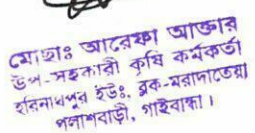 মোছাঃ আরেফা আক্তার
উপ-সহকারী কৃষি কর্মকর্তা
হরিনাথপুর ইউঃ, ব্লক-মরাদাতেয়া
পলাশবাড়ী, গাইবান্ধা।